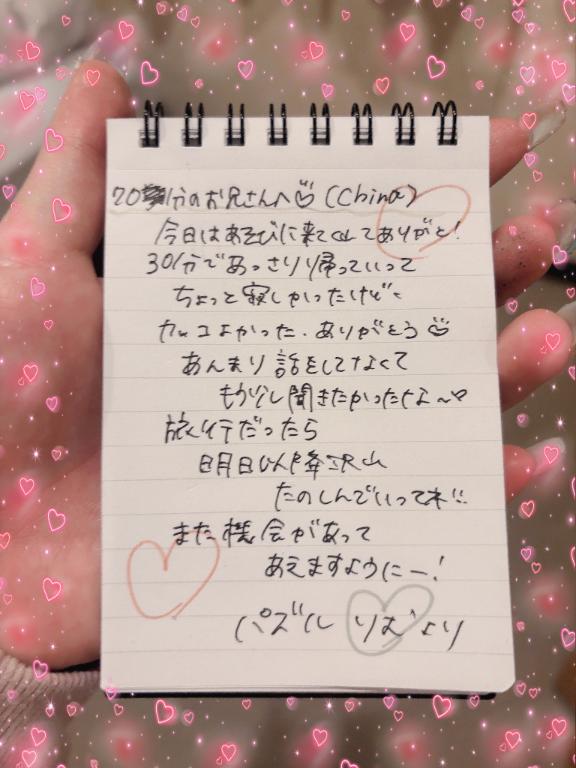 70分のお兄さんへ♡ (China)
今日はあそびに来てくれてありがと!
30分であっさり帰っていって
ちょっと寂しかったけど
カッコよかった、ありがとう
あんまり話をしてなくて
もう少し聞きたかったなー♡
旅行だったら
明日以降沢山
たのしんでいってネ!!
また機会があって
あえますようにー!
パズル りむより